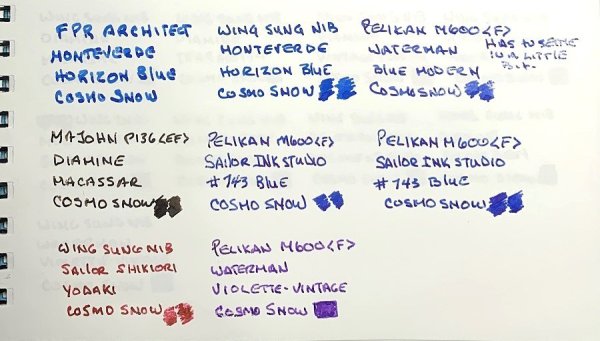 FPR ARCHITECT
MONTEVERDE
HORIZON BLUE
COSMO SNOW
WING SUNG NIB
MONTEVERDE
HORIZON BLUE
COSMO SNOW
PELIKAN M600<F>
WATERMAN
BLUE MODERN
COSMO SNOW
HAS TO SETTLE
IN A LITTLE
BIT.
MAJOHN P136<EF>
DIAMINE
MACASSAR
COSMO SNOW
PELIKAN M600<F>
SAILOR INK STUDIO
#743 BLUE
COSMO SNOW
PELIKAN M600<F>
SAILOR INK STUDIO
#143 BLUE
COSMO SNOW
WING SUNG NIB
SAILOR SHIKIORI
YODAKI
COSMO SNOW
PELIKAN M600<F>
WATERMAN
VIOLETTE-VINTAGE
COSMO SNOW